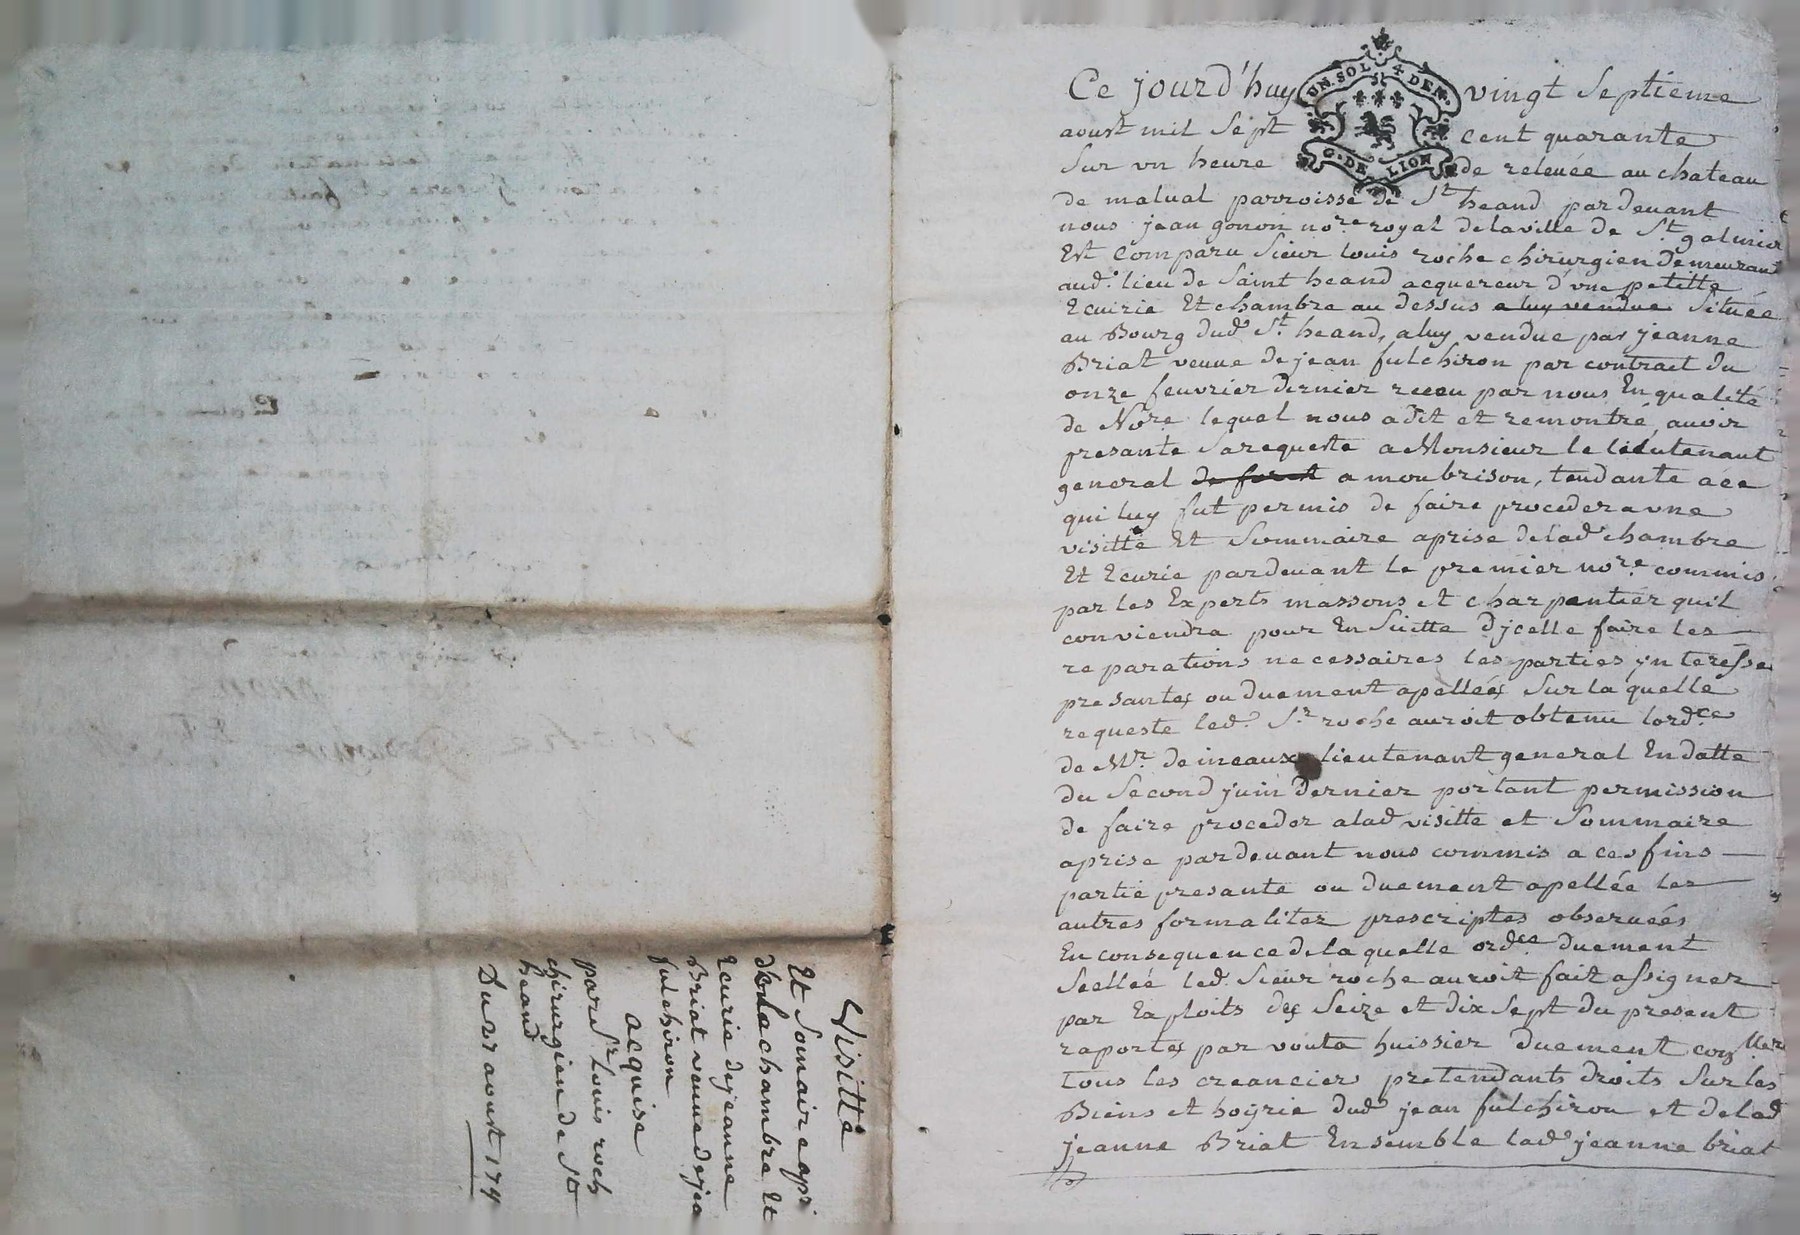 Ce jourd'huy vingt septieme
UN. SOL. 4 DEN.
G. DE LION
aoust mil sept cent quarante
sur vn heure de releuée au chateau
de malual parroisse de St heand pardeuant
nous jean gonon nore royal de la ville de St galmier
Est Comparu Sieur louis roche chirurgien demeurant
aud. lieu de Saint heand acquereur d'vne petitte
Ecuirie Et chambre au dessus a luy vendue Située
au Bourg dud St heand, a luy vendue par jeanne
Briat veuue de jean fulchiron par contrait du
onze feuvrier dernier receu par nous En qualité
de Nore lequel nous a dit et remontré, auoir
presante Sa requeste a Monsieur le lieutenant
general de forest a monbrison, tendante a ce
qui luy fut permis de faire proceder a vne
visitte Et Sommaire aprise de lad chambre
Et Ecurie pardeuant le premier nore commis
par les Experts massons et charpentier quil
conviendra pour En Suitte dycelle faire les
reparations necessaires les parties ynteresse
presantes ou duement apellées Sur la quelle
requeste led. Sr roche auroit obtenu lordce
de Mr. de meaux lieutenant general En datte
du Second juin dernier portant permission
de faire proceder a lad visitte et Sommaire
aprise pardeuant nous commis a ces fins
partie presante ou duement apellée les
autres formalitez prescriptes obseruéés
En consequence de la quelle ordce duement
Scellée led. Sieur roche auroit fait assigner
par Exploits des Seize et dix Sept du present
raportes par vouta huissier duement conllez
tous les creanciers pretendants droits Sur les
Biens et hoyrie dud jean fulchiron et de lad
jeanne Briat Ensemble lad jeanne briat
Visitte
Et Somaire apri
de la chambre Et
Ecurie de jeanne
Briat veuue de jea
fulchiron
acquise
par Sr Louis roch
chirurgien de St
heand
Du 27 aoust 174